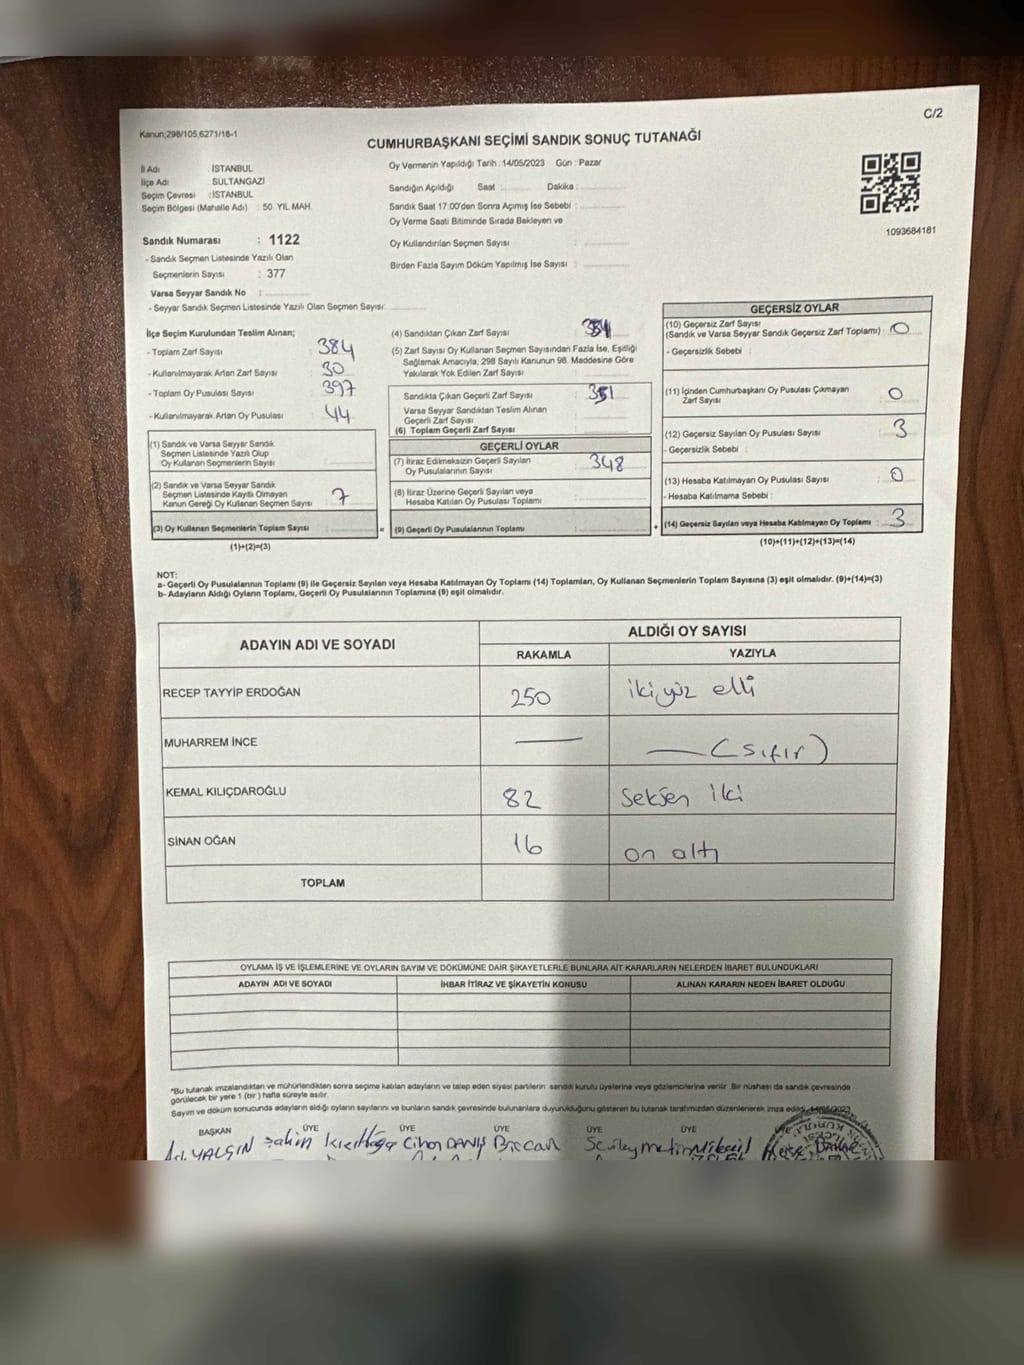 C/2
Kanun;298/105,6271/18-1
CUMHURBAŞKANI SEÇİMİ SANDIK SONUÇ TUTANAĞI
İl Adı : İSTANBUL
İlçe Adı : SULTANGAZİ
Seçim Çevresi : İSTANBUL
Seçim Bölgesi (Mahalle Adı) : 50. YIL MAH.
Sandık Numarası : 1122
- Sandık Seçmen Listesinde Yazılı Olan
Seçmenlerin Sayısı : 377
Varsa Seyyar Sandık No :
- Seyyar Sandık Seçmen Listesinde Yazılı Olan Seçmen Sayısı:
Oy Vermenin Yapıldığı Tarih :14/05/2023 Gün : Pazar
Sandığın Açıldığı Saat : Dakika :
Sandık Saat 17:00'den Sonra Açımış İse Sebebi :
Oy Verme Saati Bitiminde Sırada Bekleyen ve
Oy Kullandırılan Seçmen Sayısı :
Birden Fazla Sayım Döküm Yapılmış İse Sayısı :
1093684181
İlçe Seçim Kurulundan Teslim Alınan;
- Toplam Zarf Sayısı : 384
- Kullanılmayarak Artan Zarf Sayısı : 30
- Toplam Oy Pusulası Sayısı : 397
- Kullanılmayarak Artan Oy Pusulası : 44
(1) Sandık ve Varsa Seyyar Sandık
Seçmen Listesinde Yazılı Olup
Oy Kullanan Seçmenlerin Sayısı :
(2) Sandık ve Varsa Seyyar Sandık
Seçmen Listesinde Kayıtlı Olmayan
Kanun Gereği Oy Kullanan Seçmen Sayısı : 7
(3) Oy Kullanan Seçmenlerin Toplam Sayısı :
(1)+(2)=(3)
(4) Sandıktan Çıkan Zarf Sayısı :
(5) Zarf Sayısı Oy Kullanan Seçmen Sayısından Fazla İse, Eşitliği
Sağlamak Amacıyla, 298 Sayılı Kanunun 98. Maddesine Göre
Yakılarak Yok Edilen Zarf Sayısı :
Sandıkta Çıkan Geçerli Zarf Sayısı : 351
Varsa Seyyar Sandıktan Teslim Alınan
Geçerli Zarf Sayısı :
(6) Toplam Geçerli Zarf Sayısı :
GEÇERLİ OYLAR
(7) İtiraz Edilmeksizin Geçerli Sayılan
Oy Pusulalarının Sayısı : 348
(8) İtiraz Üzerine Geçerli Sayılan veya
Hesaba Katılan Oy Pusulası Toplamı :
= (9) Geçerli Oy Pusulalarının Toplamı : +
GEÇERSİZ OYLAR
(10) Geçersiz Zarf Sayısı
(Sandık ve Varsa Seyyar Sandık Geçersiz Zarf Toplamı) : 0
- Geçersizlik Sebebi :
(11) İçinden Cumhurbaşkanı Oy Pusulası Çıkmayan
Zarf Sayısı : 0
(12) Geçersiz Sayılan Oy Pusulası Sayısı : 3
- Geçersizlik Sebebi :
(13) Hesaba Katılmayan Oy Pusulası Sayısı : 0
- Hesaba Katılmama Sebebi :
(14) Geçersiz Sayılan veya Hesaba Katılmayan Oy Toplamı : 3
(10)+(11)+(12)+(13)=(14)
NOT:
a- Geçerli Oy Pusulalarının Toplamı (9) ile Geçersiz Sayılan veya Hesaba Katılmayan Oy Toplamı (14) Toplamları, Oy Kullanan Seçmenlerin Toplam Sayısına (3) eşit olmalıdır. (9)+(14)=(3)
b- Adayların Aldığı Oyların Toplamı, Geçerli Oy Pusulalarının Toplamına (9) eşit olmalıdır.
ADAYIN ADI VE SOYADI
ALDIĞI OY SAYISI
RAKAMLA YAZIYLA
RECEP TAYYİP ERDOĞAN 250 iki yüz elli
MUHARREM İNCE — —(sıfır)
KEMAL KILIÇDAROĞLU 82 Seksen iki
SİNAN OĞAN 16 on altı
TOPLAM
OYLAMA İŞ VE İŞLEMLERİNE VE OYLARIN SAYIM VE DÖKÜMÜNE DAİR ŞİKAYETLERLE BUNLARA AİT KARARLARIN NELERDEN İBARET BULUNDUKLARI
ADAYIN ADI VE SOYADI İHBAR İTİRAZ VE ŞİKAYETİN KONUSU ALINAN KARARIN NEDEN İBARET OLDUĞU
*Bu tutanak imzalandıktan ve mühürlendikten sonra seçime katılan adayların ve talep eden siyasi partilerin sandık kurulu üyelerine veya gözlemcilerine verilir .Bir nüshası da sandık çevresinde
görülecek bir yere 1 (bir) hafta süreyle asılır.
Sayım ve döküm sonucunda adayların aldığı oyların sayılarını ve bunların sandık çevresinde bulunanlara duyurulduğunu gösteren bu tutanak tarafımızdan düzenlenerek imza edildi. 14/05/2023
BAŞKAN ÜYE ÜYE ÜYE ÜYE
YALÇIN Şahin Cihan DANIŞ